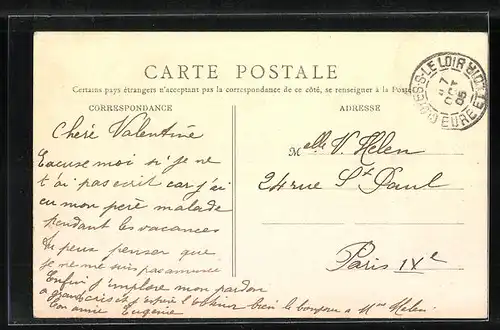 CARTE POSTALE
Certains pays étrangers n'acceptant pas la correspondance de ce côté, se renseigner à la Poste
CORRESPONDANCE
ADRESSE
Chère Valentine
Excuse moi si je ne
t'ai pas ecrit car j'ai
eu mon père malade
pendant les vacances
tu peux penser que
je ne me suis pas amusée
Enfin j'implore mon pardon
a grand cris et j'espère l'obtenir bien le bonjour a Mme Helen.
Ton amie Eugenie
Melle V. Helen
24 rue St Paul
Paris IXe
LE LOIR
7
OCT
05
EURE ET